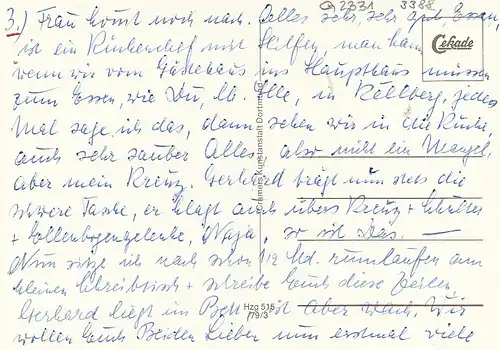 3.) Frau kommt noch nach. Alles sehr, sehr gut Essen,
ist ein Küchenchef mit Helfen, man kann
wenn wir vom Gästehaus ins Haupthaus müssen
zum Essen, wie Du, lb. Elle, in Kellberg, jedes
Mal sage ich das, dann sehen wir in die Küche
auch sehr sauber Alles, also nicht ein Mangel,
aber mein Kreuz. Gerhard trägt nun stets die
schwere Tasche, er klagt auch übers Kreuz + Schulter
+ Ellenbogengelenke, Naja, so ist das. —
Nun sitze ich nach schon 1/2 Std. rumlaufen am
kleinen Schreibtisch + schreibe Euch diese Zeilen,
Gerhard liegt im Bett ist aber wach, Wir
wollen Euch Beiden Lieben nun erstmal viele
2831 3388
Cekade
Cramers Kunstanstalt Dortmund
Hzg 515
/79/3